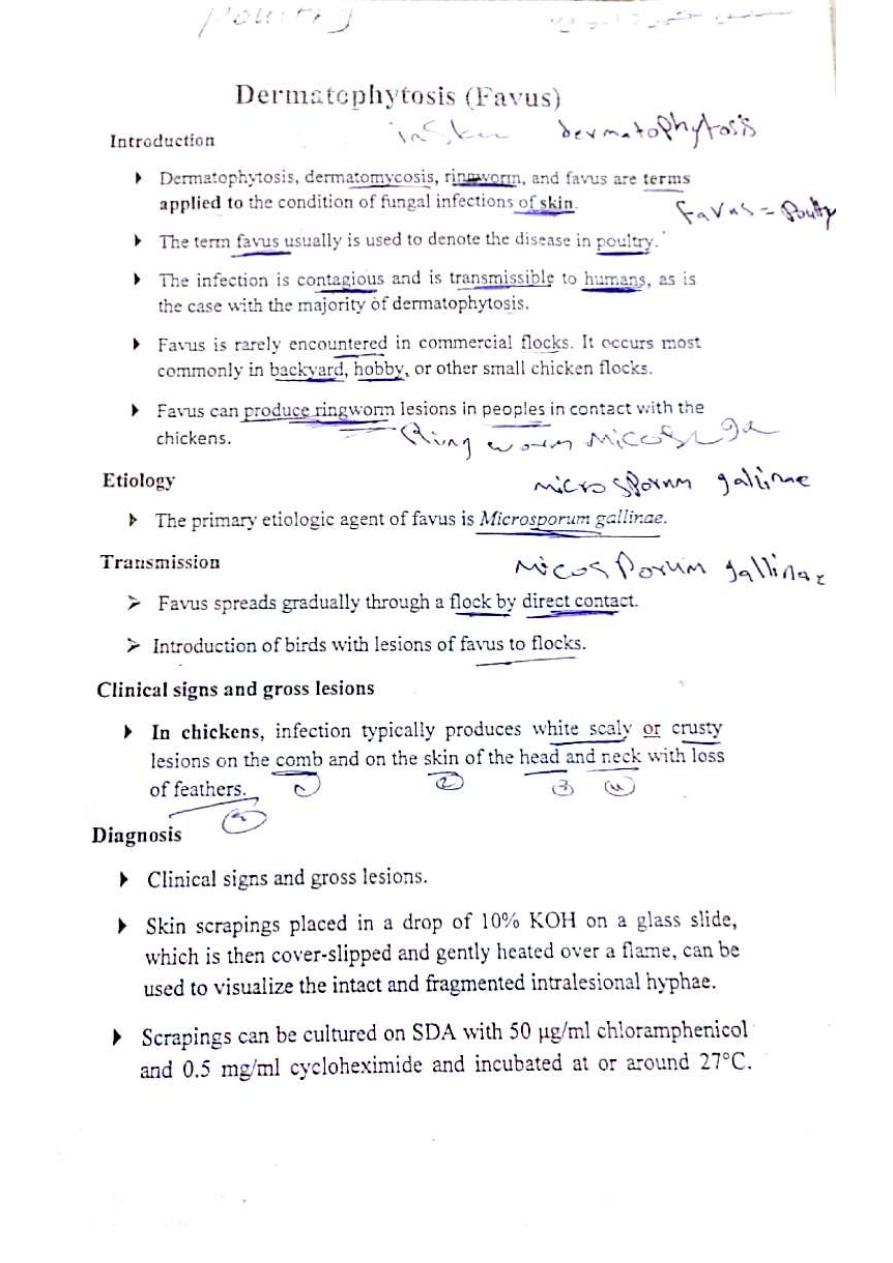 Poultry
Dermatophytosis (Favus)
in Skin dermatophytosis
Introduction
Dermatophytosis, dermatomycosis, ringworm, and favus are terms
applied to the condition of fungal infections of skin.
Favus = Poultry
The term favus usually is used to denote the disease in poultry.
The infection is contagious and is transmissible to humans, as is
the case with the majority of dermatophytosis.
Favus is rarely encountered in commercial flocks. It occurs most
commonly in backyard, hobby, or other small chicken flocks.
Favus can produce ringworm lesions in peoples in contact with the
chickens.
Ring worm
Etiology
microsporum gallinae
The primary etiologic agent of favus is Microsporum gallinae.
Transmission
Micosporum gallinae
Favus spreads gradually through a flock by direct contact.
Introduction of birds with lesions of favus to flocks.
Clinical signs and gross lesions
In chickens, infection typically produces white scaly or crusty
lesions on the comb and on the skin of the head and neck with loss
of feathers. 1 2 3 4
Diagnosis
Clinical signs and gross lesions.
Skin scrapings placed in a drop of 10% KOH on a glass slide,
which is then cover-slipped and gently heated over a flame, can be
used to visualize the intact and fragmented intralesional hyphae.
Scrapings can be cultured on SDA with 50 µg/ml chloramphenicol
and 0.5 mg/ml cycloheximide and incubated at or around 27°C.